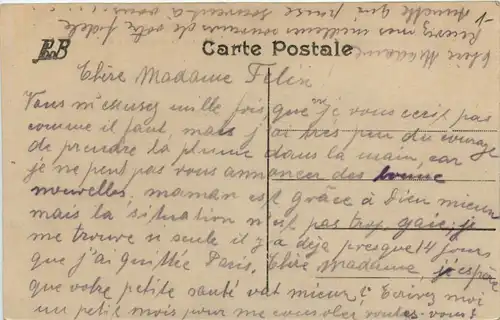 PB
Carte Postale
Chère Madame Felix
Vous m'excusez mille fois que je vous ecris pas
comme il faut, mais j'ai tres peu du courage
de prendre la plume dans la main, car
je ne peut pas vous annoncer des bonne
nouvelles, maman est grâce à Dieu mieux
mais la situation n'est pas trop gaie, je
me trouve si seule il y a déja presque 14 jours
que j'ai quittée Paris. Chère Madame, j'espère
que votre petite santé vat mieux? Ecrivez moi
un petit mois pour me consoler voulez-vous?
Chère Madame
Recevez mes meilleurs souvenirs de votre fidele
qui pense souvent à vous